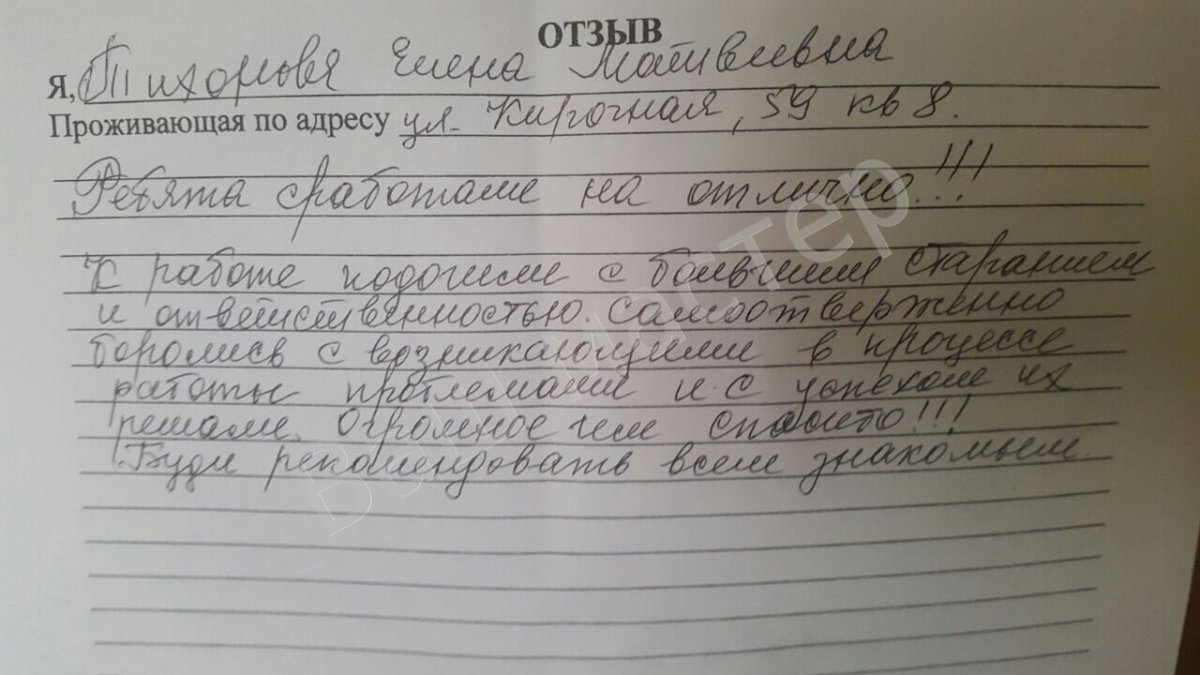 ОТЗЫВ
Я, Тихонова Елена Матвеевна
Проживающая по адресу ул. Кирочная, 59 кв 8.
Ребята сработали на отлично!!!
К работе подошли с большим старанием
и ответственностью. Самоотверженно
боролись с возникающими в процессе
работы проблемами и с успехом их
решали. Огромное им спасибо!!!
Буду рекомендовать всем знакомым.